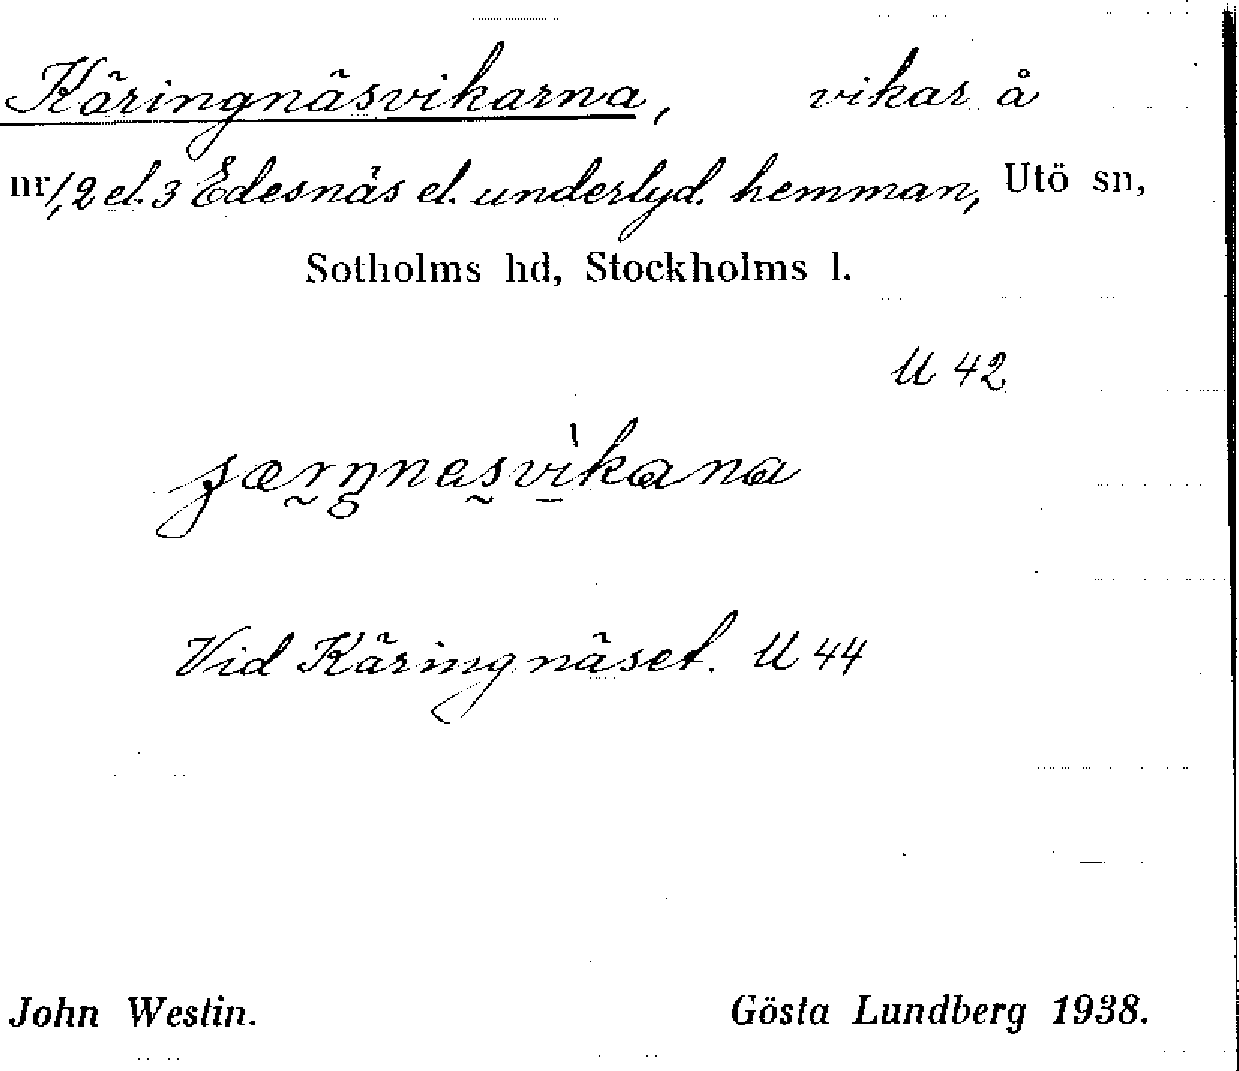 Käringnäsvikarna, vikar å
nr 1, 2 el. 3 Edesnäs el. underlyd. hemman, Utö sn,
Sotholms hd, Stockholms l.
U 42
Vid Käringnäset. U 44
John Westin. Gösta Lundberg 1938.